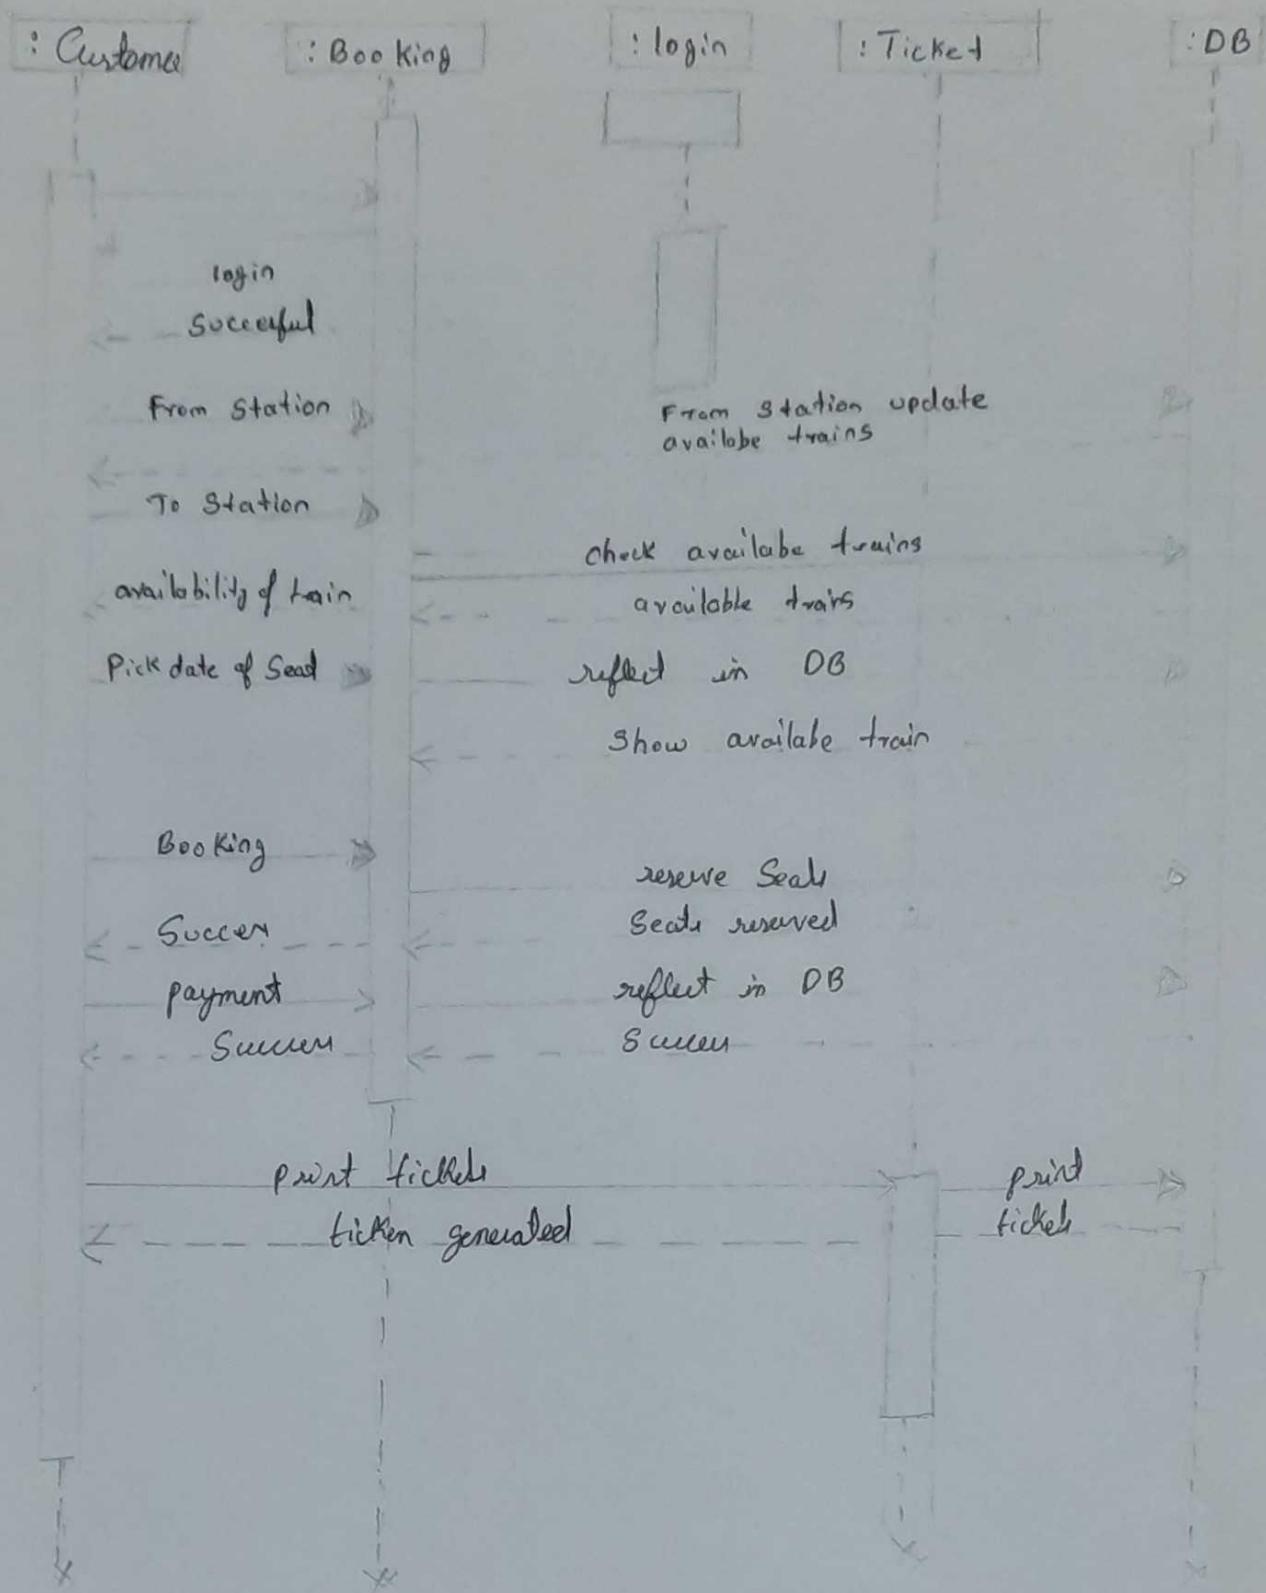 : Customer
: Booking
: login
: Ticket
: DB
login
Succesful
From Station
From station update
availabe trains
To Station
check availabe trains
availability of train
available trains
Pick date of Seat
reflect in DB
Show availabe train
Booking
reserve Seats
Success
Seats reserved
payment
reflect in DB
Success
Success
print tickets
print
ticken generated
tickets